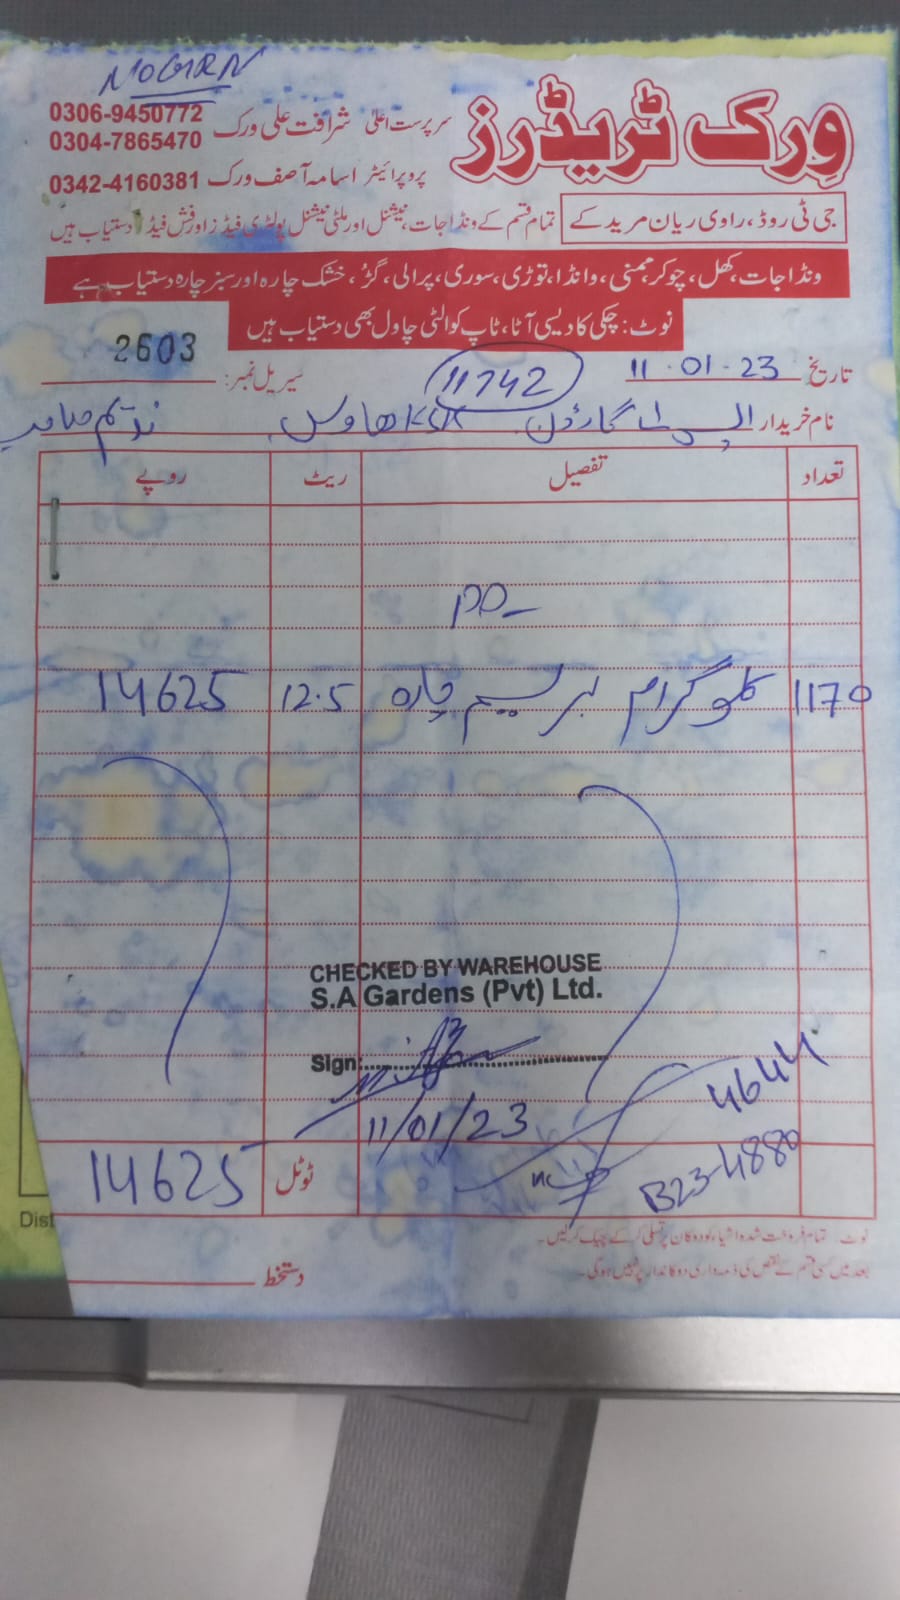 NOGRN
ورک ٹریڈرز
0306-9450772
0304-7865470
سرپرست اعلیٰ شرافت علی ورک
0342-4160381 پروپرائیٹر اسامہ آصف ورک
جی ٹی روڈ، راوی ریان مریدکے
تمام قسم کے ونڈا جات، نیشنل اور ملٹی نیشنل پولٹری فیڈز اور فش فیڈ دستیاب ہیں
ونڈا جات، کھل، چوکر، ممنی، وانڈا، توڑی، سوری، پرالی، گڑ، خشک چارہ اور سبز چارہ دستیاب ہے
نوٹ: چکی کا دیسی آٹا، ٹاپ کوالٹی چاول بھی دستیاب ہیں
تاریخ 11-01-23
11742
سیریل نمبر: 2603
نام خریدار ایس اے گارڈن KSK ھاوس ندیم صاحب
تعداد تفصیل ریٹ روپے
1170 کلوگرام برسیم چارہ 12.5 14625
CHECKED BY WAREHOUSE
S.A Gardens (Pvt) Ltd.
Sign:
11/01/23
4644
B23-4880
ٹوٹل 14625
نوٹ: تمام فروخت شدہ اشیاء کو دوکان پر تسلی کر کے چیک کر لیں۔
بعد میں کسی قسم کے نقص کی ذمہ داری دوکاندار پر نہیں ہوگی۔
دستخط
Dist